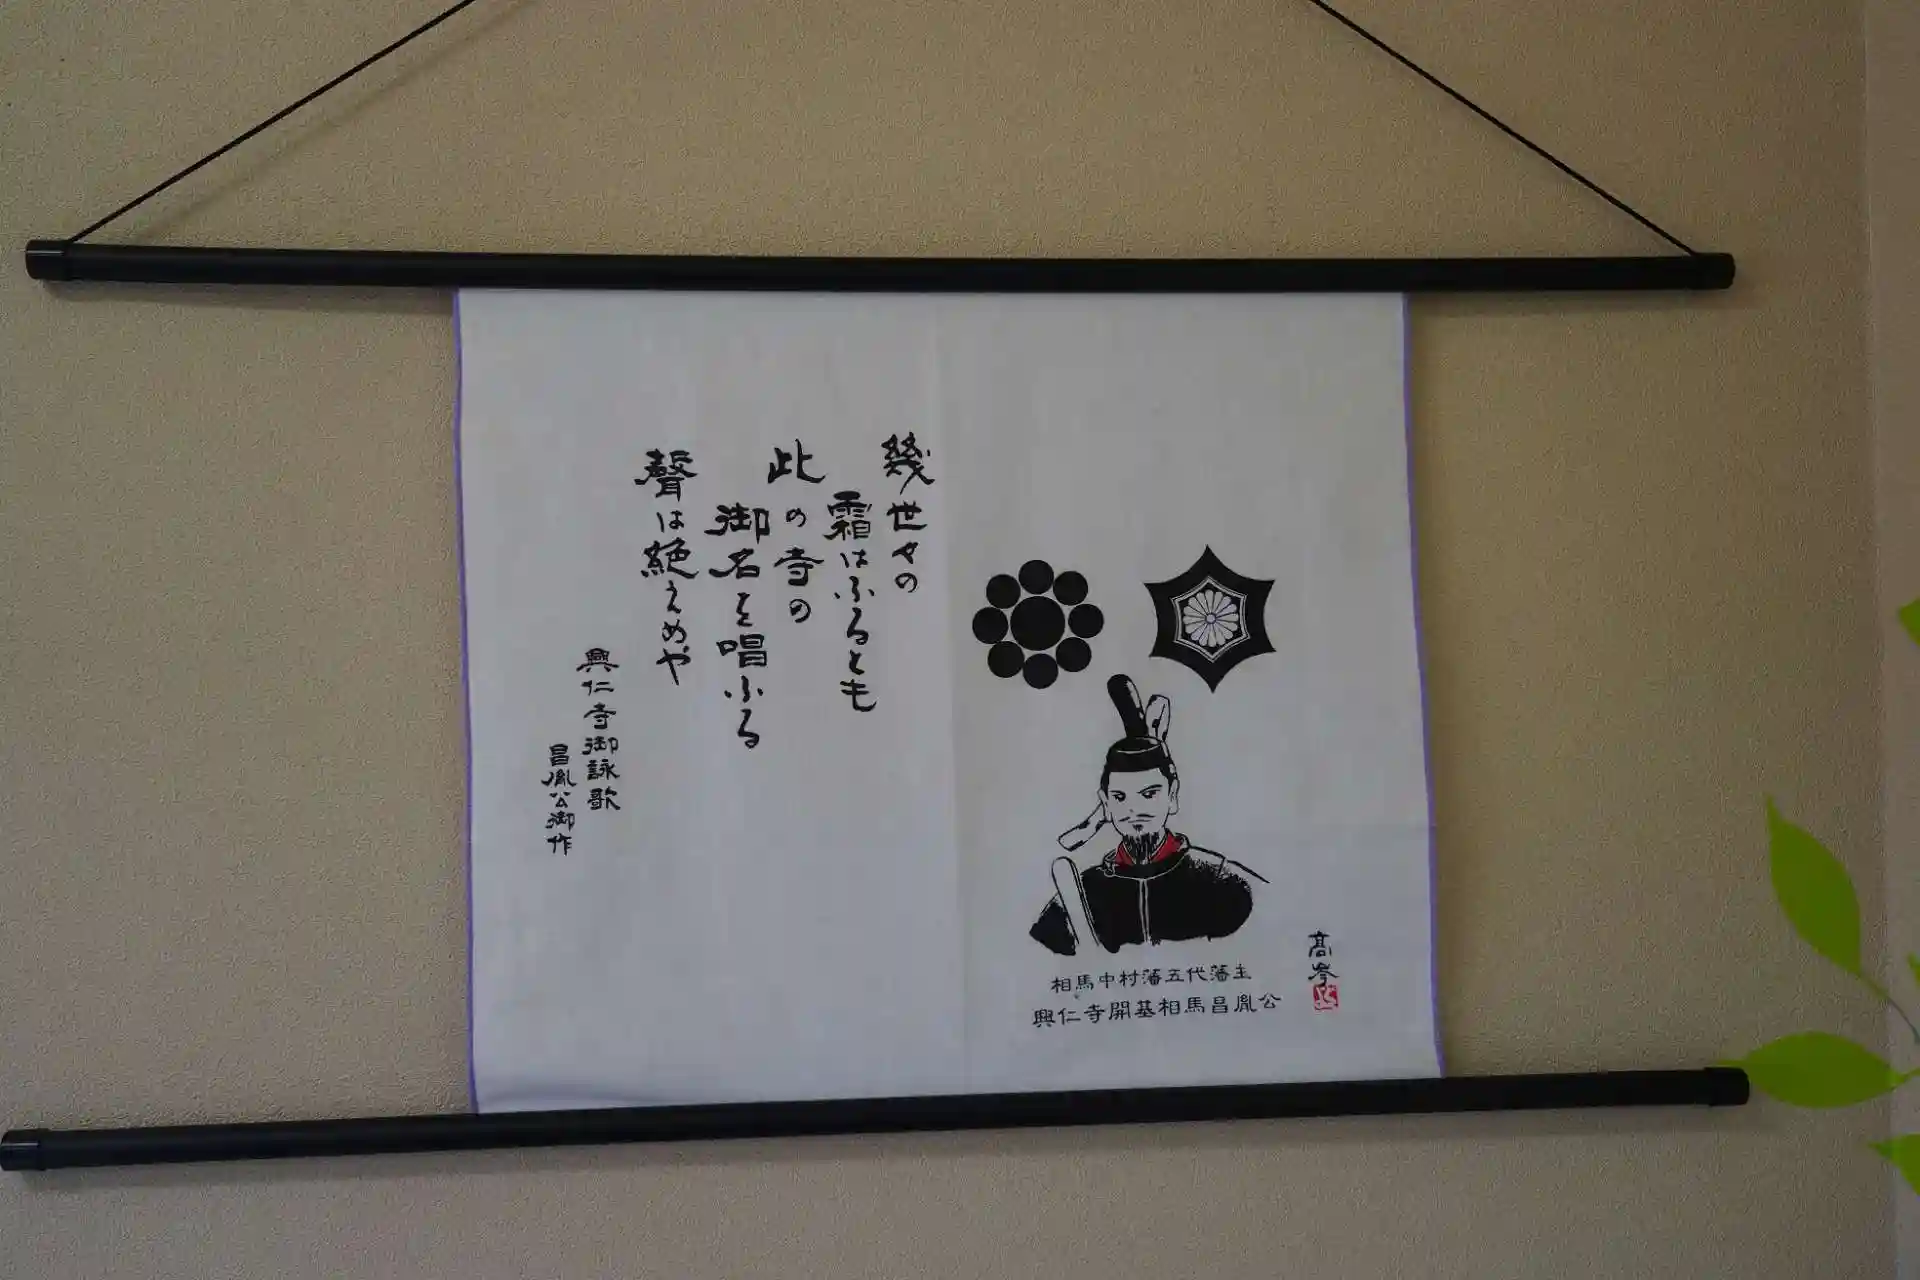 幾世々の
霜はふるとも
此の寺の
御名を唱ふる
聲は絶えめや
興仁寺御詠歌
昌胤公御作
相馬中村藩五代藩主
興仁寺開基相馬昌胤公
髙岑